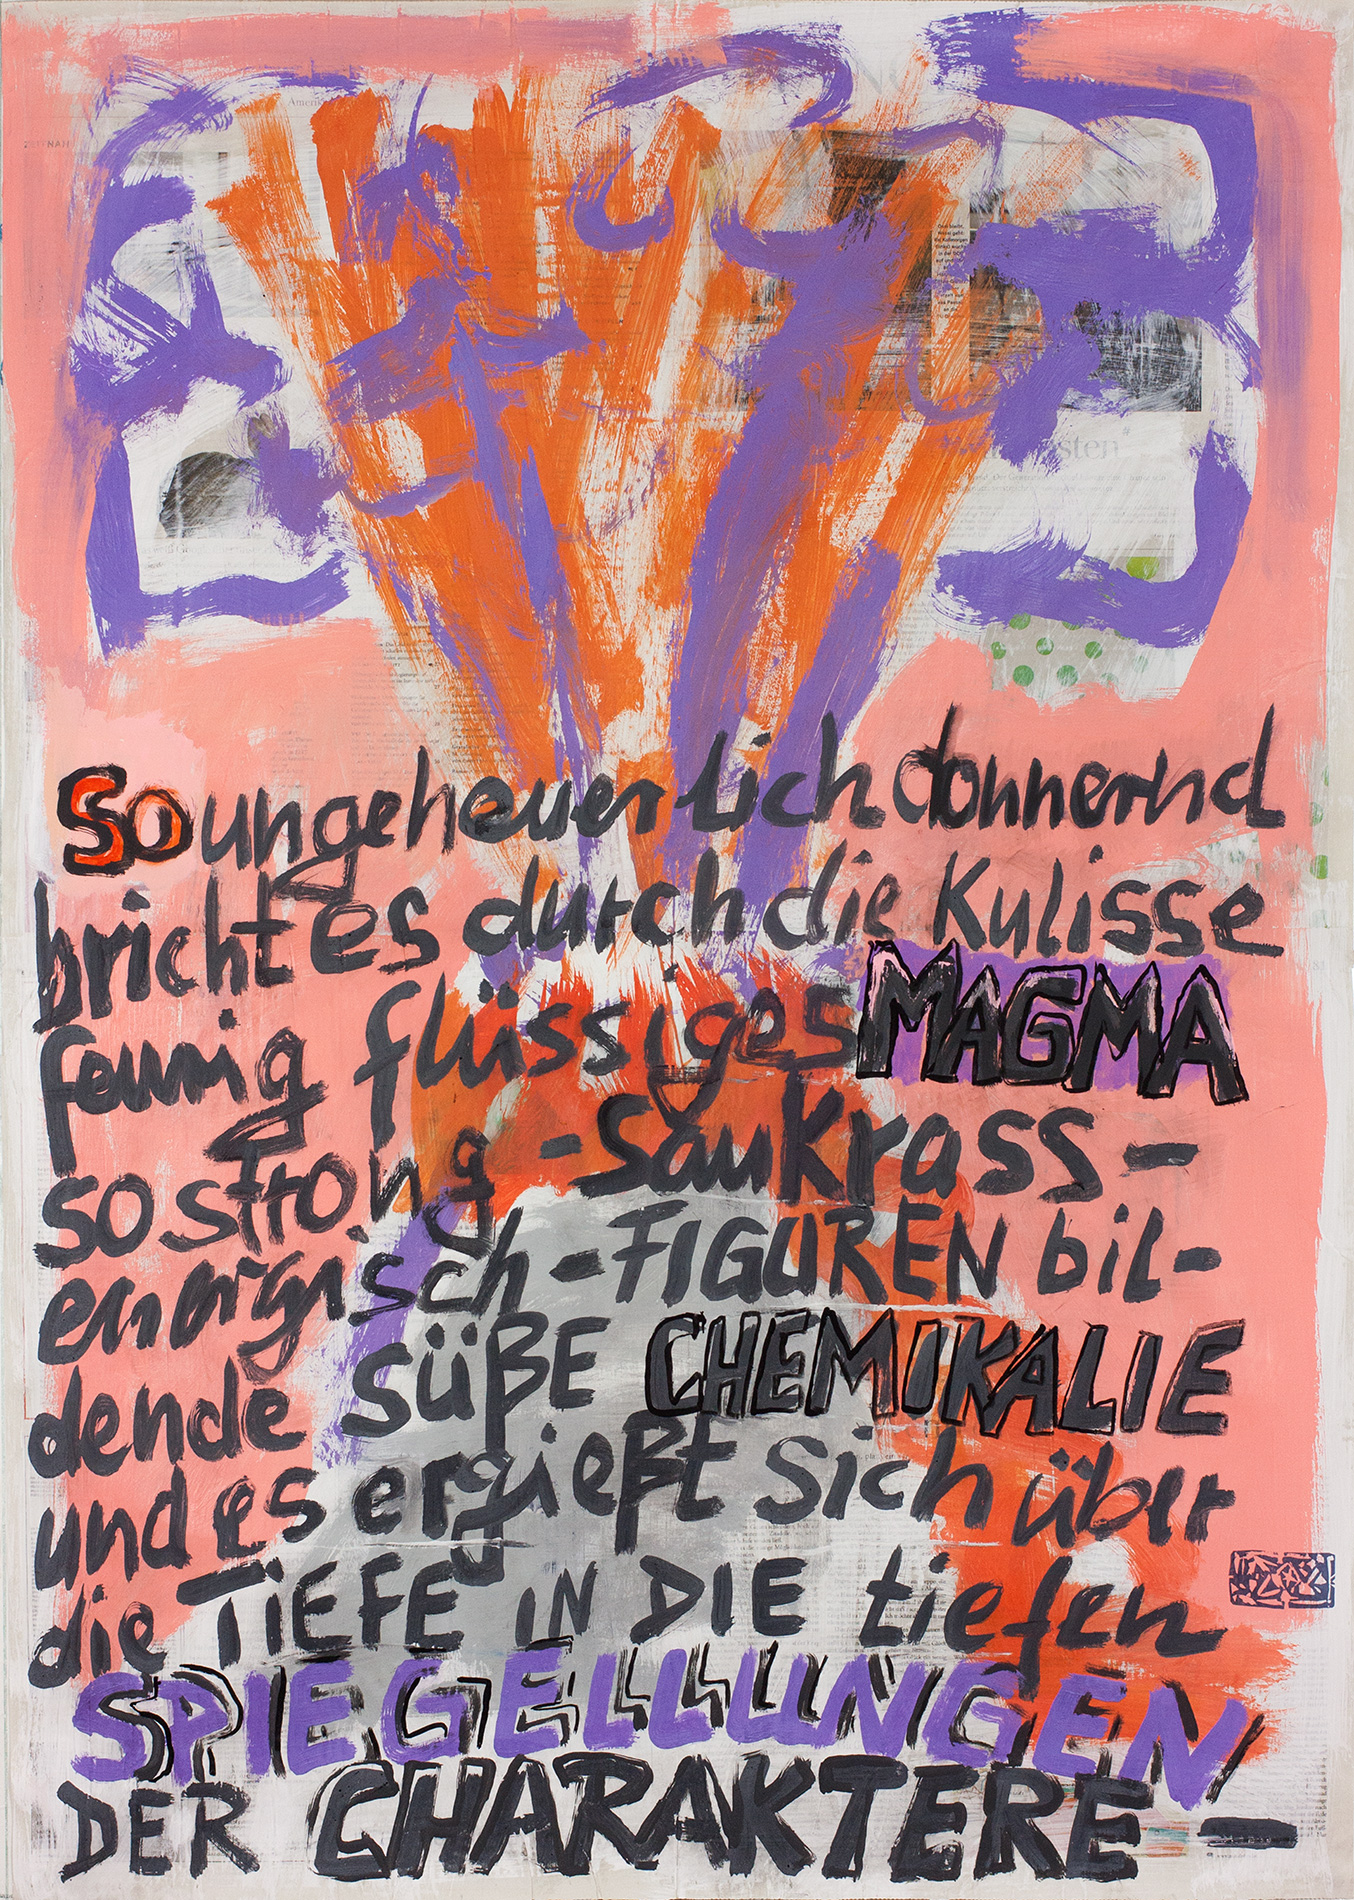 So ungeheuerlich donnernd
bricht es durch die Kulisse
feurig flüssiges MAGMA
so strong - saukrass -
energisch - FIGUREN bil-
dende SÜßE CHEMIKALIE
und es ergießt sich über
die TIEFE IN DIE tiefen
SPIEGELLUNGEN
DER CHARAKTERE —